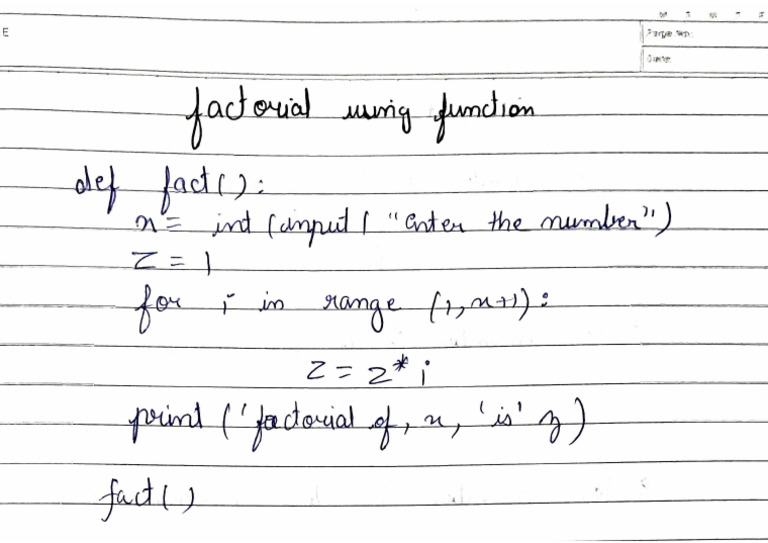 E
Page No:
Date
factorial using function
def fact():
n = int (input ( "enter the number")
z = 1
for i in range (1, n+1):
z = z * i
print ('factorial of, n, 'is' z)
fact()